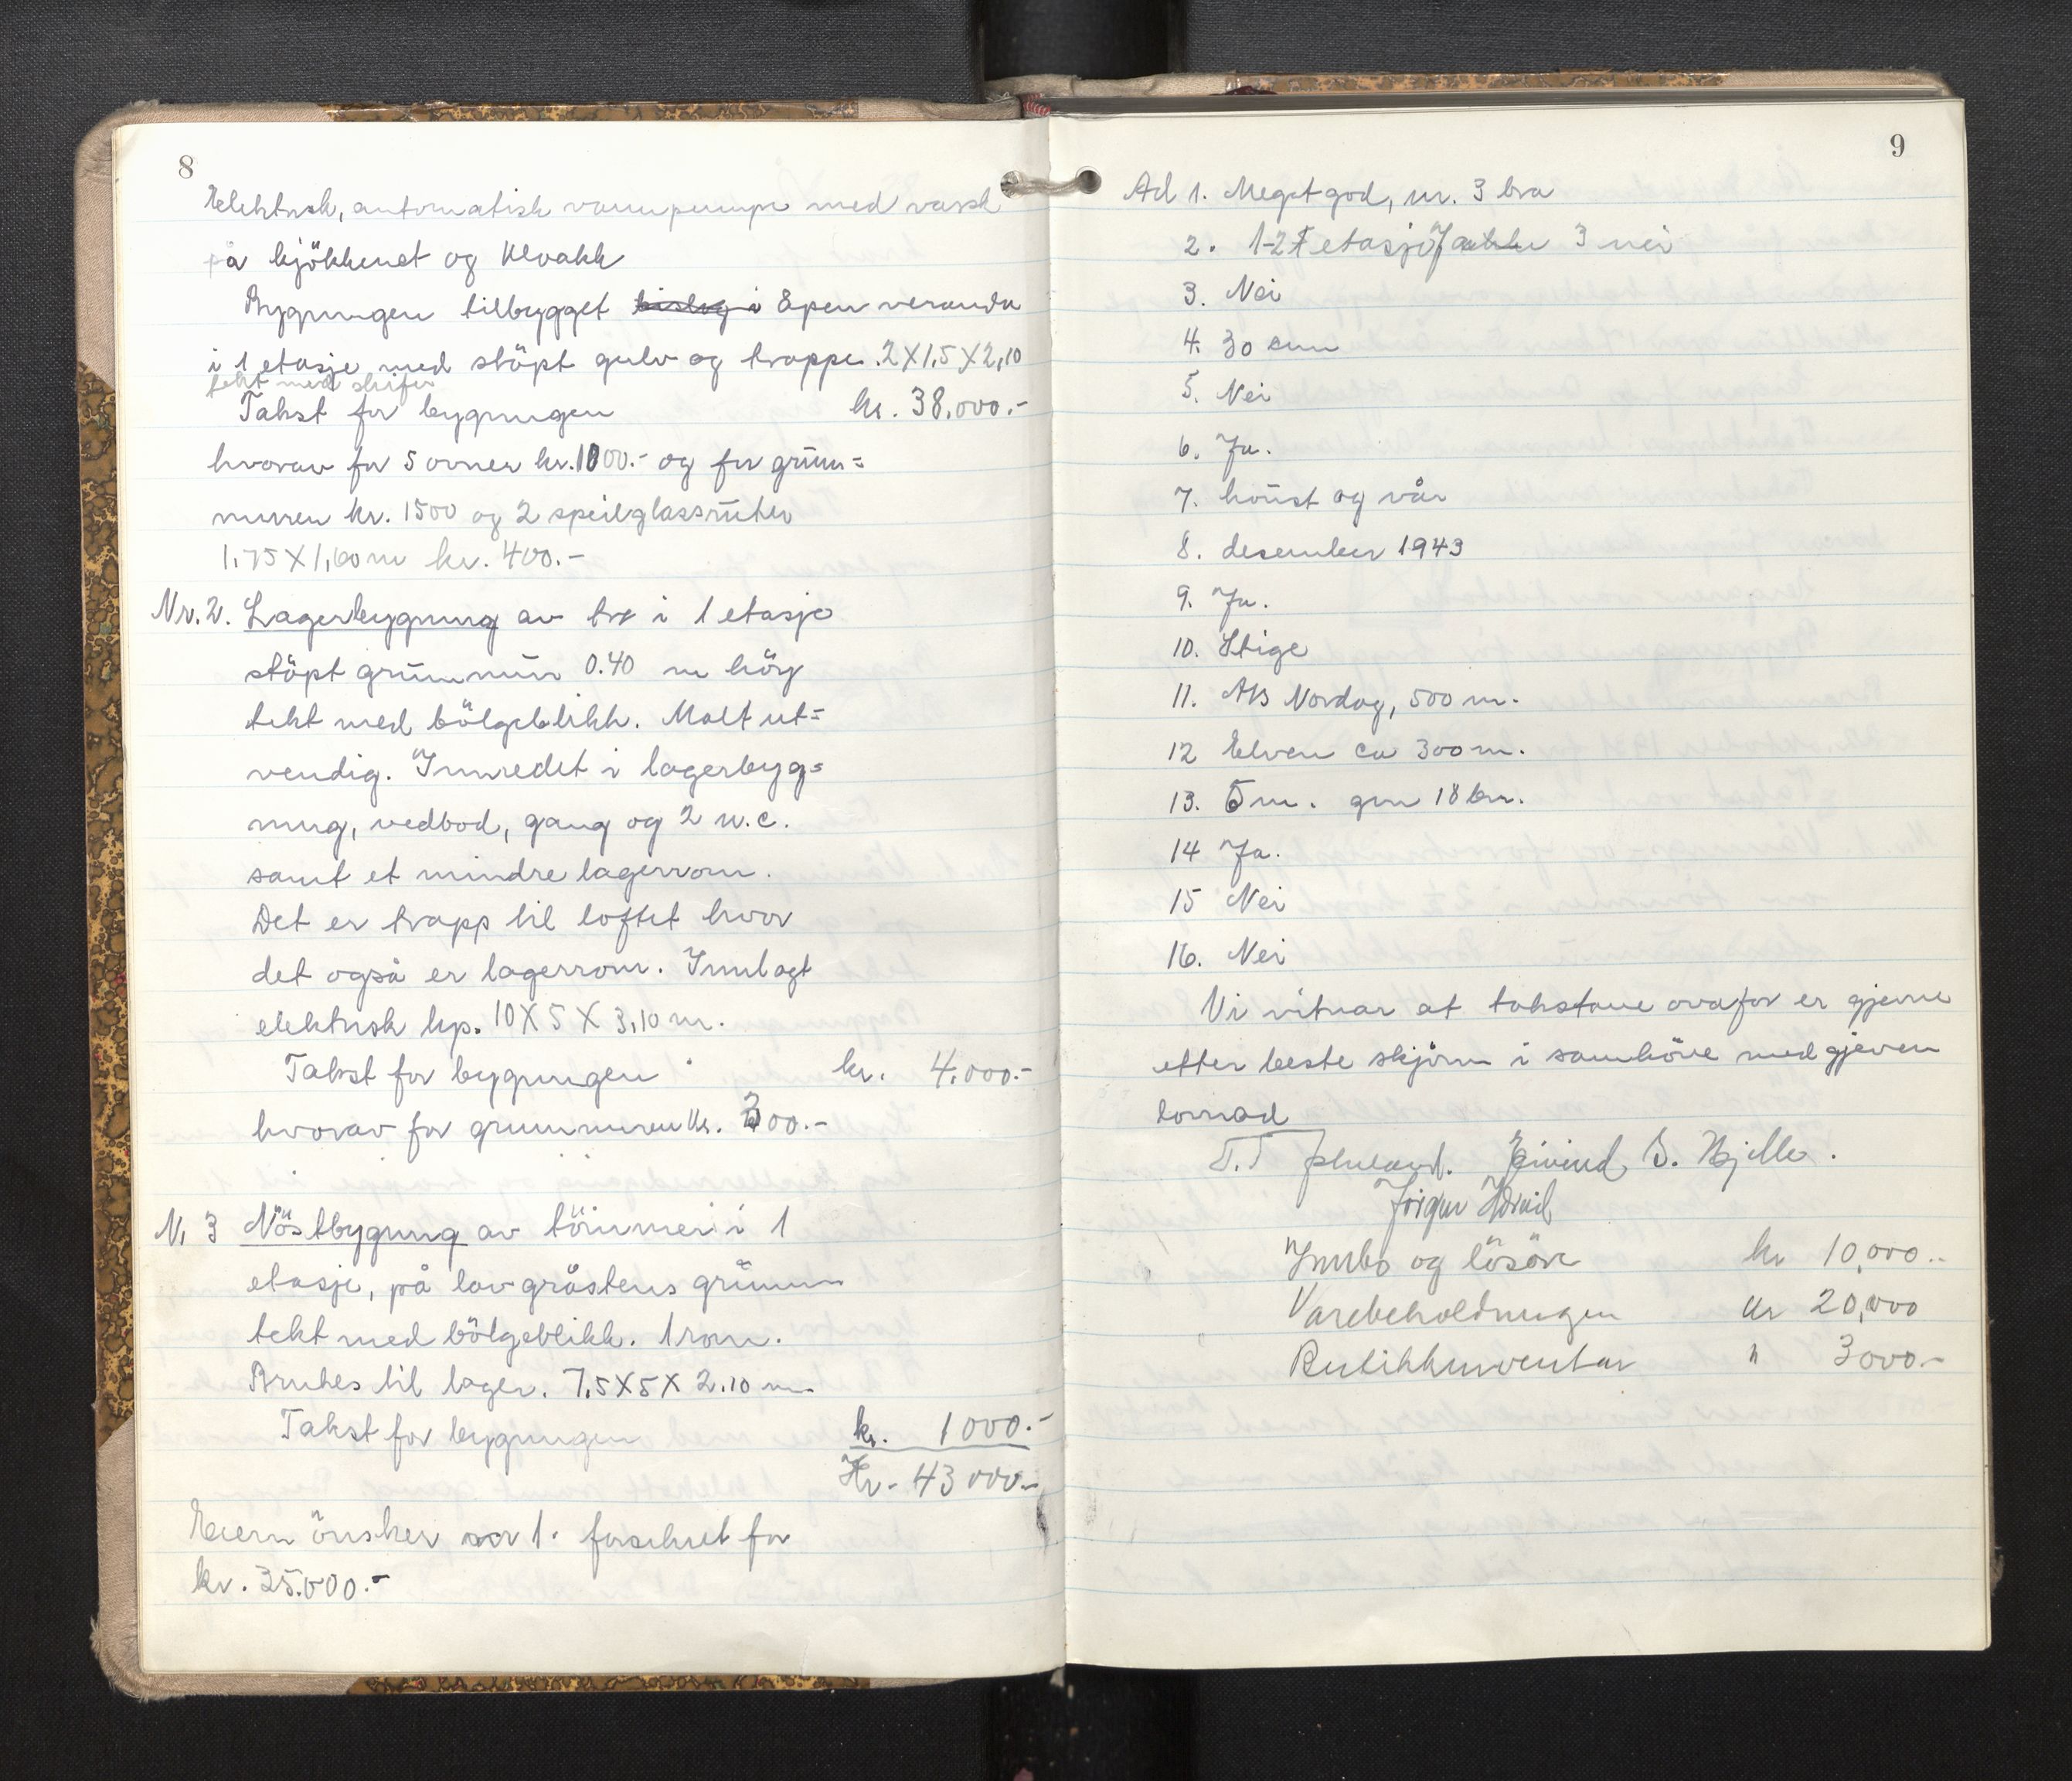 8
Elektrisk, automatisk vannpumpe med vask
på kjökkenet og Kloakk
Bygningen tilbygget bislag i åpen veranda
i 1 etasje med stöpt gulv og trappe. 2 X 1,5 X 2,10
tekt med skifer
Takst for bygningen kr. 38.000.-
hvorav for 5 ovner kr. 1000.- og for grunn=
muren kr. 1500 og 2 speilglassruter
1,75 X 1,60 m kr. 400.-
Nr. 2. Lagerbygning av tre i 1 etasje
stöpt grunnmur 0.40 m höy
tekt med bölgeblikk. Malt ut=
vendig. Innredet i lagerbyg=
ning, vedbod, gang og 2 w.c.
samt et mindre lagerrom.
Det er trapp til loftet hvor
det også er lagerrom. Innlagt
elektrisk lys. 10 X 5 X 3,10 m.
Takst for bygningen kr. 4.000.-
hvorav for grunnmuren kr. 300.-
N. 3 Nöstbygning av tömmer i 1
etasje, på lav gråstens grunn
tekt med bölgeblikk. 1 rom.
Brukes til lager. 7,5 X 5 X 2.10 m
Takst for bygningen kr. 1000.-
Kr. 43000.-
Eieren önsker nr 1. forsikret for
kr. 35.000.-
9
Ad 1. Meget god, nr. 3 bra
2. 1-2 I etasje 3 nei
3. Nei
4. 30 cm
5. Nei
6. Ja.
7. höust og vår
8. desember 1943
9. Ja.
10. Stige
11. A/s Nordag, 500 m.
12 Elven ca 300 m.
13. 5 m. 18 km.
14 Ja.
15 Nei
16. Nei
Vi vitnar at takstane ovafor er gjevne
etter beste skjönn i samhöve med gjeven
lovnad
Eivind S. Hjelle.
Innbo og lösöre kr 10,000..
Varebeholdningen kr 20,000
Butikkinventar " 3000.-